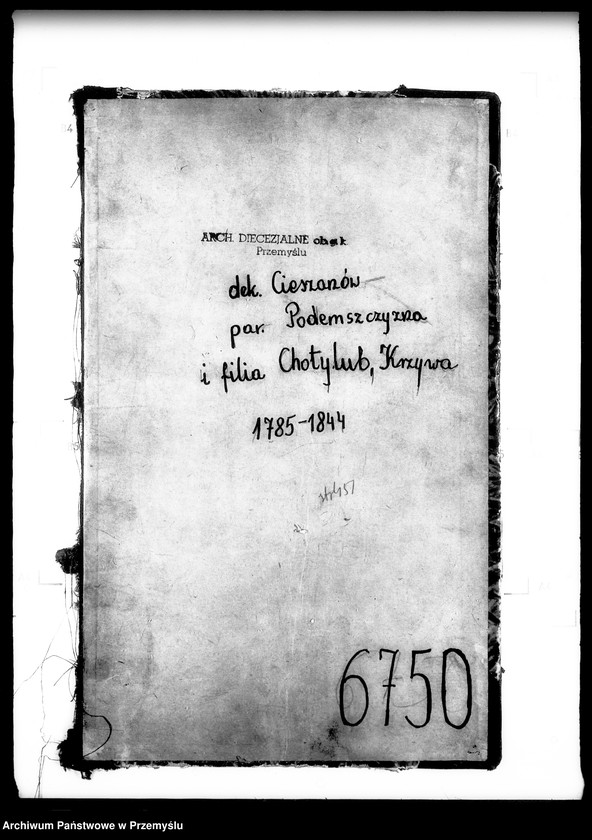 ARCH. DIECEZJALNE ob. gr. k.
Przemyślu
dek. Cieszanów
par. Podemszczyzna
i filia Chotylub, Krzywa
1785-1844
6750
Archiwum Państwowe w Przemyślu